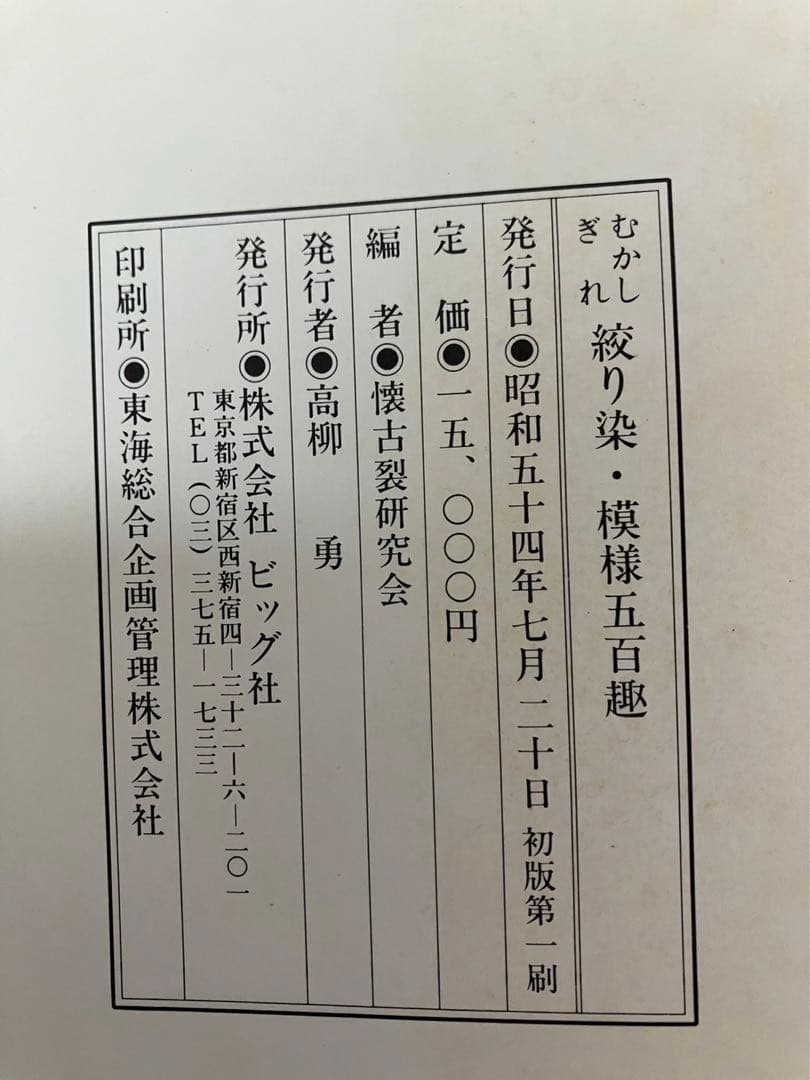 むかし
ぎれ
絞り染・模様五百趣
発行日◉昭和五十四年七月二十日 初版第一刷
定 価◉一五、〇〇〇円
編 者◉懐古裂研究会
発行者◉高柳 勇
発行所◉株式会社 ビッグ社
東京都新宿区西新宿四―三十二―六―二〇一
TEL(〇三)三七五―一七三三
印刷所◉東海総合企画管理株式会社